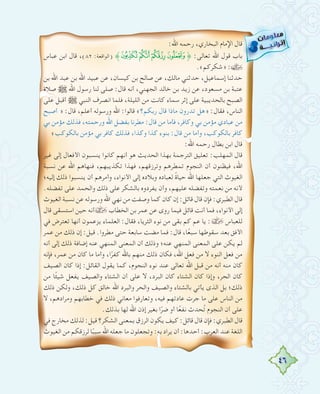 معلومات
إثرائية
قال الإمام البخاري، رحمه الله:
باب قول الله تعالى: ﴿ وَتَجْعَلُونَ رِزْقَكُمْ أَنَّكُمْ تُكَذِّبُونَ ﴾ (الواقعة: ٨٢)، قال ابن عباس
: «شكركم».
حدثنا إسماعيل، حدثني مالك، عن صالح بن كيسان، عن عبيد الله بن عبد الله بن
عتبة بن مسعود، عن زيد بن خالد الجهني، أنه قال: صلى لنا رسول الله ﷺ صلاة
الصبح بالحديبية على إثر سماء كانت من الليلة، فلما انصرف النبي ﷺ أقبل على
الناس، فقال: «هل تدرون ماذا قال ربكم؟» قالوا: الله ورسوله أعلم، قال: «أصبح
من عبادي مؤمن بي وكافر، فأما من قال: مطرنا بفضل الله ورحمته، فذلك مؤمن بي
كافر بالكوكب، وأما من قال: بنوء كذا وكذا، فذلك كافر بي مؤمن بالكوكب»
قال ابن بطال رحمه الله:
قال المهلب: تعليق الترجمة بهذا الحديث هو أنهم كانوا ينسبون الأفعال إلى غير
الله، فيظنون أن النجوم تمطرهم وترزقهم، فهذا تكذيبهم، فنهاهم الله عن نسبة
الغيوث التي جعلها الله حياة لعباده وبلاده إلى الأنواء، وأمرهم أن ينسبوا ذلك إليه؛
لأنه من نعمته وتفضله عليهم، وأن يفردوه بالشكر على ذلك والحمد على تفضله.
قال الطبري: فإن قال قائل: إن كان كما وصفت من نهي الله ورسوله عن نسبة الغيوث
إلى الأنواء، فما أنت قائل فيما روي عن عمر بن الخطاب أنه حين استسقى قال
للعباس: يا عم كم بقى من نوء الثريا، فقال: العلماء يزعمون أنها تعترض في
الأفق بعد سقوطها سبعًا، قال: فما مضت سابعة حتى مطروا. قيل: إن ذلك من عمر
لم يكن على المعنى المنهي عنه؛ وذلك أن المعنى المنهي عنه إضافة ذلك إلى أنه
من فعل النوء لا من فعل الله، فكان ذلك منهم بالله كفرًا، وأما ما كان من عمر، فإنه
كان منه أنه من قبل الله تعالى عند نوء النجوم، كما يقول القائل: إذا كان الصيف
كان الحر، وإذا كان الشتاء كان البرد، لا على أن الشتاء والصيف يفعل شيئًا من
ذلك؛ بل الذي يأتي بالشتاء والصيف والحر والبرد الله خالق كل ذلك، ولكن ذلك
من الناس على ما جرت عادتهم فيه، وتعارفوا معاني ذلك في خطابهم ومرادهم، لا
على أن النجوم تُحدث نفعًا أو ضرًا بغير إذن الله لها بذلك.
قال الطبري: فإن قال قائل: كيف يكون الرزق بمعنى الشكر؟ قيل: لذلك مخارج في
اللغة عند العرب: أحدها: أن يراد به: وتجعلون ما جعله الله سببًا لرزقكم من الغيوث
٤٦